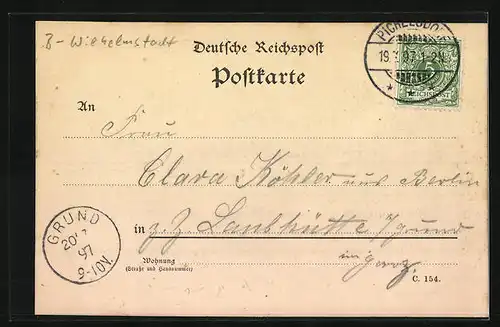 B-Wilhelmstadt
Deutsche Reichspost
Postkarte
PICHELSDO
19. 97. 1-2N.
REICHSPOST
An
Frau
Clara Köhler aus Berlin
in z. Z. Laubhütte b/Grund
im Harz.
GRUND
20 97
9-10V.
Wohnung
(Straße und Hausnummer)
C. 154.